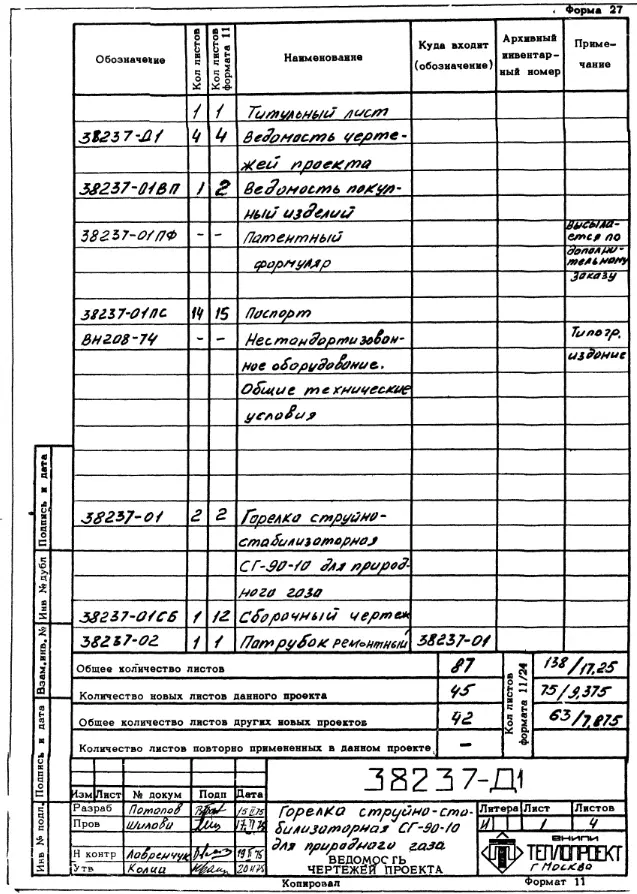 Форма 27
Обозначение Кол листов Кол листов формата 11 Наименование Куда входит (обозначение) Архивный инвентарный номер Примечание
1 1 Титульный лист
38237-Д1 4 4 Ведомость черте-
жей проекта
38237-01ВП 1 2 Ведомость покуп-
ный изделий
38237-01ПФ - - Патентный Высыла-
ется по
формуляр дополни-
тельному
заказу
38237-01ПС 14 15 Паспорт
ВН208-74 - - Нестандартизован- Типогр.
ное оборудование. издание
Общие технические
условия
38237-01 2 2 Горелка струйно-
стабилизаторная
СГ-90-10 для природ-
ного газа
38237-01СБ 1 12 Сборочный чертеж
38237-02 1 1 Патрубок ремонтный 38237-01
Общее количество листов 87 138/17,25
Количество новых листов данного проекта 45 75/9,375
Общее количество листов других новых проектов 42 63/7,875
Количество листов повторно примененных в данном проекте -
Кол листов формата 11/24
Подпись и дата
Инв № дубл
Взам.инв. №
Подпись и дата
Инв № подл.
38237-Д1
Изм Лист № докум Подп Дата
Разраб Потопов
Пров Шилова
Н контр Лавренчук
Утв
Горелка струйно-ста-
билизаторная СГ-90-10
для природного газа
ВЕДОМОСТЬ
ЧЕРТЕЖЕЙ ПРОЕКТА
Литера Лист Листов
И 1 4
ВНИПИ
ТЕПЛОПРОЕКТ
г Москва
Копировал Формат 11